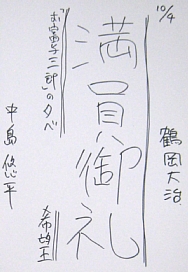 10/4
鶴岡大治
満員御礼
希望王
"お富与三郎"の夕べ
中島悠平